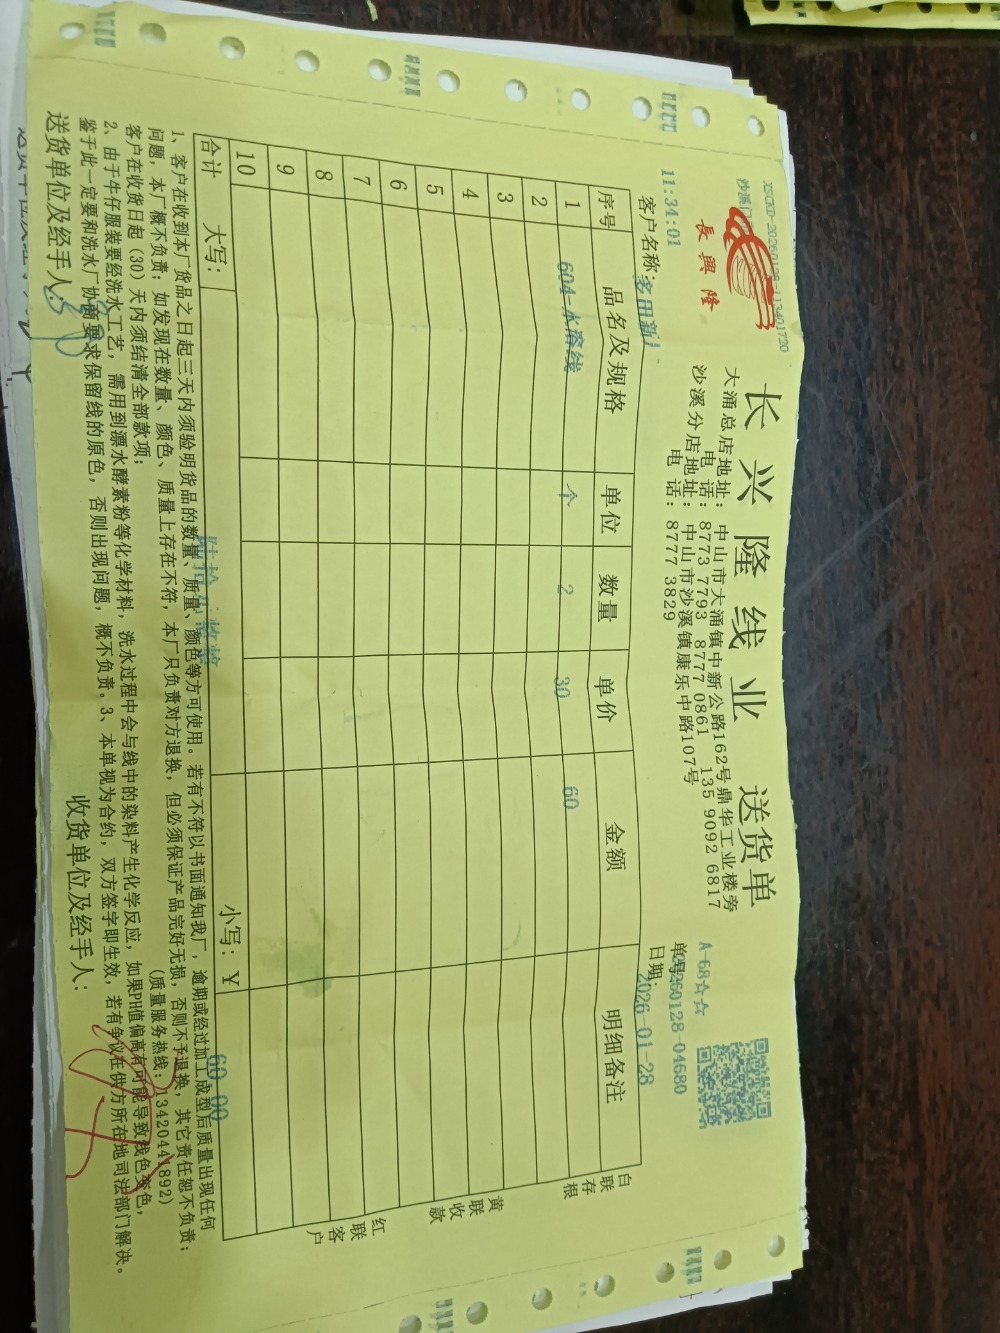 长兴隆线业 送货单
長興隆
大涌总店地址：中山市大涌镇中新公路162号鼎华工业楼旁
电话：8773 7793 8777 0861 135 9092 6817
沙溪分店地址：中山市沙溪镇康乐中路107号
电话：8777 3829
A-68☆☆
11:34:01
客户名称：
日期：2026-01-28
序号 品名及规格 单位 数量 单价 金额 明细备注
1 604-水溶线 个 2 30 60
2
3
4
5
6
7
8
9
10
合计 大写： 小写：￥ 60.00
白联存根
黄联收款
红联客户
1、客户在收到本厂货品之日起三天内须验明货品的数量、质量、颜色等方可使用。若有不符以书面通知我厂，逾期或经过加工成型后质量出现任何
问题，本厂概不负责；如发现在数量、颜色、质量上存在不符，本厂只负责对方退换，但必须保证产品完好无损，否则不予退换，其它责任恕不负责；
客户在收货日起（30）天内须结清全部款项； （质量服务热线：13420441892）
2、由于牛仔服装要经洗水工艺，需用到漂水酵素粉等化学材料，洗水过程中会与线中的染料产生化学反应，如果PH值偏高有可能导致线色变色，
鉴于此一定要和洗水厂协商要求保留线的原色，否则出现问题，概不负责。3、本单视为合约，双方签字即生效，若有争议在供方所在地司法部门解决。
送货单位及经手人： 收货单位及经手人：